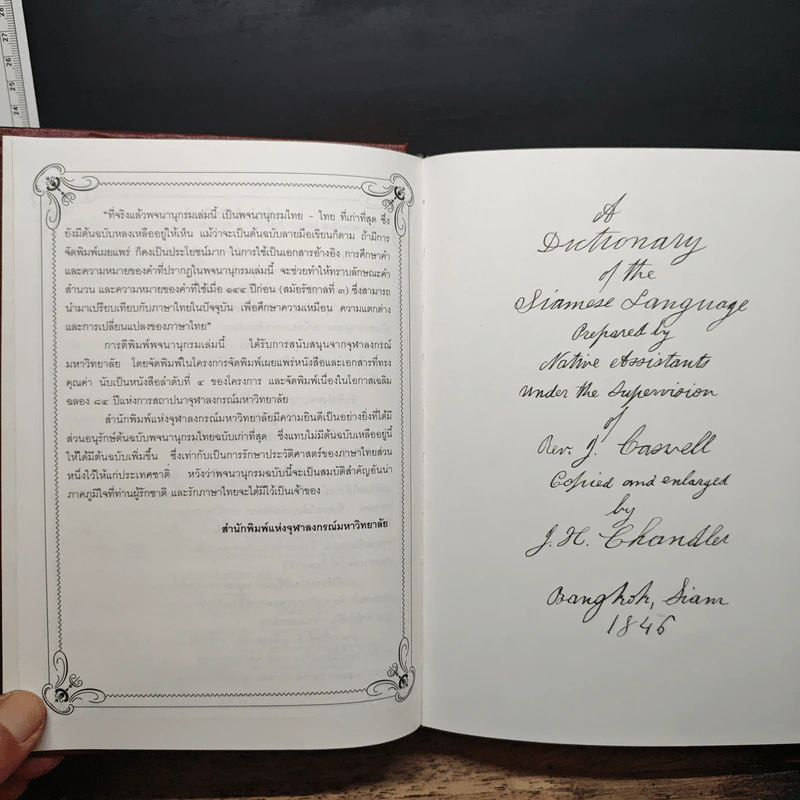 "ที่จริงแล้วพจนานุกรมเล่มนี้ เป็นพจนานุกรมไทย - ไทย ที่เก่าที่สุด ซึ่ง
ยังมีต้นฉบับหลงเหลืออยู่ให้เห็น แม้ว่าจะเป็นต้นฉบับลายมือเขียนก็ตาม ถ้ามีการ
จัดพิมพ์เผยแพร่ ก็คงเป็นประโยชน์มาก ในการใช้เป็นเอกสารอ้างอิง การศึกษาคำ
และความหมายของคำที่ปรากฏในพจนานุกรมเล่มนี้ จะช่วยทำให้ทราบลักษณะคำ
สำนวน และความหมายของคำที่ใช้เมื่อ ๑๔๔ ปีก่อน (สมัยรัชกาลที่ ๓) ซึ่งสามารถ
นำมาเปรียบเทียบกับภาษาไทยในปัจจุบัน เพื่อศึกษาความเหมือน ความแตกต่าง
และการเปลี่ยนแปลงของภาษาไทย"
การตีพิมพ์พจนานุกรมเล่มนี้ ได้รับการสนับสนุนจากจุฬาลงกรณ์
มหาวิทยาลัย โดยจัดพิมพ์ในโครงการจัดพิมพ์เผยแพร่หนังสือและเอกสารที่ทรง
คุณค่า นับเป็นหนังสือลำดับที่ ๔ ของโครงการ และจัดพิมพ์เนื่องในโอกาสเฉลิม
ฉลอง ๘๔ ปีแห่งการสถาปนาจุฬาลงกรณ์มหาวิทยาลัย
สำนักพิมพ์แห่งจุฬาลงกรณ์มหาวิทยาลัยมีความยินดีเป็นอย่างยิ่งที่ได้มี
ส่วนอนุรักษ์ต้นฉบับพจนานุกรมไทยฉบับเก่าที่สุด ซึ่งแทบไม่มีต้นฉบับเหลืออยู่นี้
ให้ได้มีต้นฉบับเพิ่มขึ้น ซึ่งเท่ากับเป็นการรักษาประวัติศาสตร์ของภาษาไทยส่วน
หนึ่งไว้ให้แก่ประเทศชาติ หวังว่าพจนานุกรมฉบับนี้จะเป็นสมบัติสำคัญอันน่า
ภาคภูมิใจที่ท่านผู้รักชาติ และรักภาษาไทยจะได้มีไว้เป็นเจ้าของ
สำนักพิมพ์แห่งจุฬาลงกรณ์มหาวิทยาลัย
A
Dictionary
of the
Siamese Language
Prepared by
Native Assistants
Under the Supervision
of
Rev. J. Caswell
Copied and enlarged
by
J. H. Chandler
Bangkok, Siam
1846
28
27
26
25
24